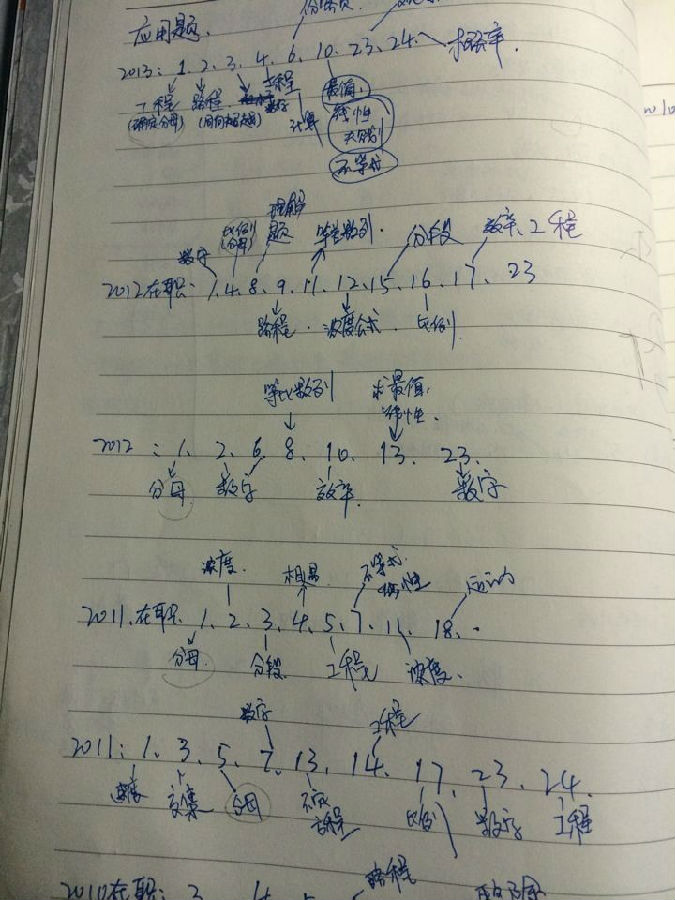 应用题.
2013: 1. 2. 3. 4. 6. 10. 23. 24. 概率.
工程 路程 工程 最值.
(确定分母) 数字 计算 线性
不等式
理解
数字 比例 题 等差数列. 分段 效率、工程
(分母)
2012在职: 1. 4. 8. 9. 11. 12. 15. 16. 17. 23
路程. 浓度公式. 比例
等比数列 求最值.
线性.
2012 : 1. 2. 6. 8. 10. 13. 23.
分母 数字 效率. 数字
浓度. 相遇 不等式.
线性
2011.在职. 1. 2. 3. 4. 5. 7. 11. 18. .
分母. 分段 工程 浓度.
数字 工程
2011: 1. 3. 5. 7. 13. 14. 17. 23. 24.
交集 分母 不定 比例 数字 工程
方程
路程
2010在职: 3